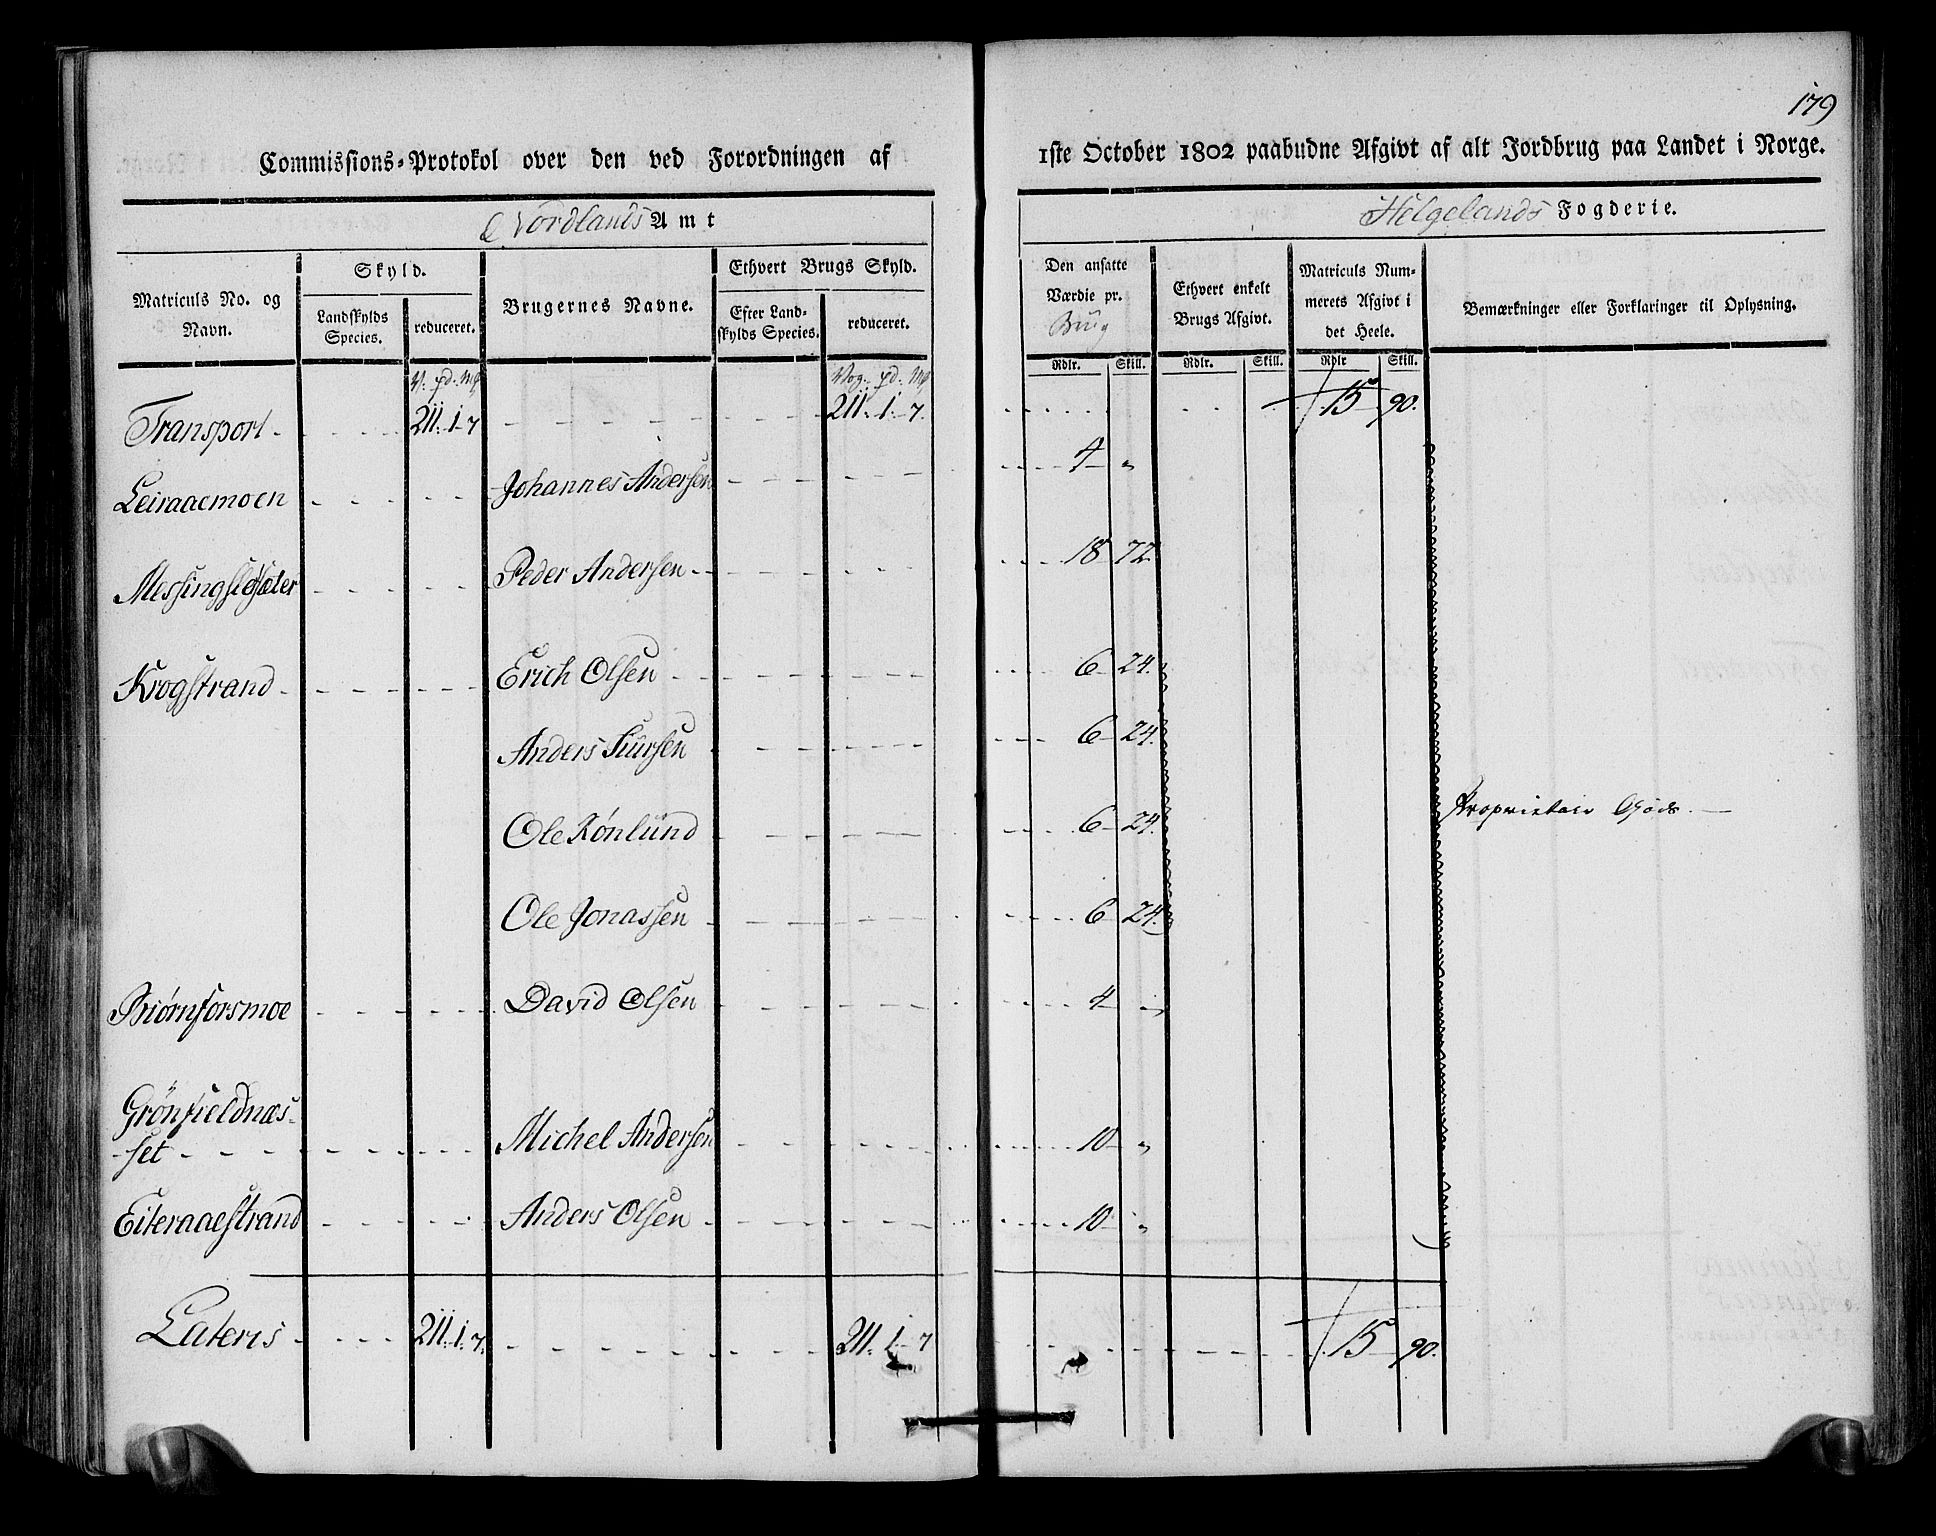 179
Commissions=Protokol over den ved Forordningen af 1ste October 1802 paabudne Afgivt af alt Jordbrug paa Landet i Norge.
Nordlands Amt Helgelands Fogderie.
Matriculs No. og Navn. Skyld. Landskylds Species. reduceret. Brugernes Navne. Ethvert Brugs Skyld. Efter Landskylds Species. reduceret. Den ansatte Værdie pr. Brug Ethvert enkelt Brugs Afgivt. Matriculs Nummerets Afgivt i det Heele. Bemærkninger eller Forklaringer til Oplysning.
Rdlr. Skill. Rdlr. Skill. Rdlr Skill.
V. pd. Mk Vog. pd. Mk
Transport 211. 1. 7 211. 1. 7. 15 90.
Leiraaemoen Johannes Andersen 4 "
Messingslesæter Peder Andersen 18 72.
Krogstrand Erich Olsen 6 24.
Anders Siursen 6 24.
Ole Rönlund 6 24. Proprietair Gods.
Ole Jonassen 6 24.
Biørnforsmoe David Olsen 4 "
Grönfieldnæs-
set Michel Andersen 10 "
Eiteraaestrand Anders Olsen 10 "
Lateris 211. 1. 7. 211. 1. 7 15 90.